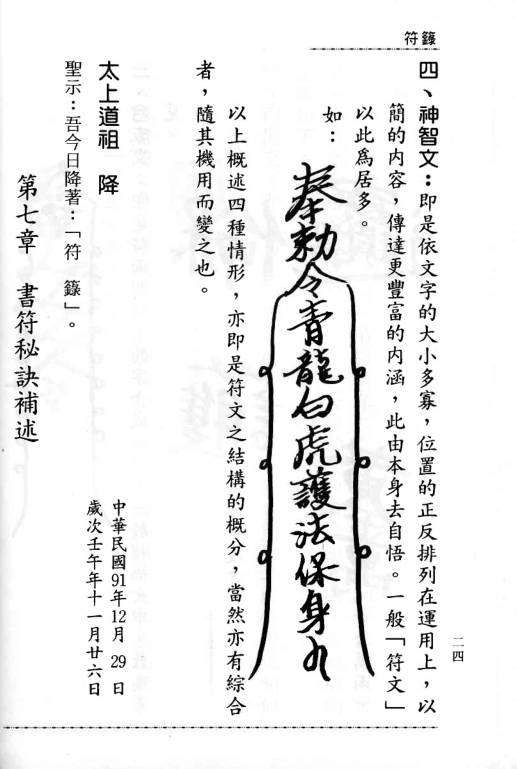 符籙
四、神智文：即是依文字的大小多寡，位置的正反排列在運用上，以
簡的內容，傳達更豐富的內涵，此由本身去自悟。一般「符文」
以此為居多。
如：
奉勅令青龍白虎護法保身
以上概述四種情形，亦即是符文之結構的概分，當然亦有綜合
者，隨其機用而變之也。
太上道祖 降
中華民國91年12月29日
歲次壬午年十一月廿六日
聖示：吾今日降著：「符 籙」。
第七章 書符秘訣補述
二四